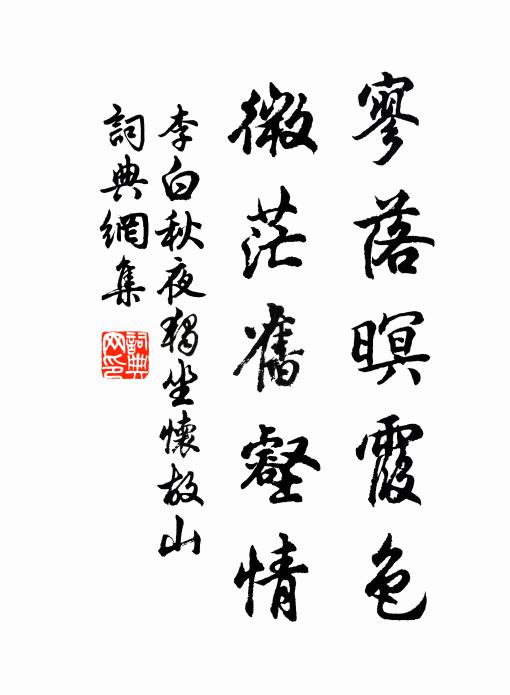 寥落暝霞色
微茫舊壑情
李白秋夜獨坐懷故山
詞典網集
詞典
网印